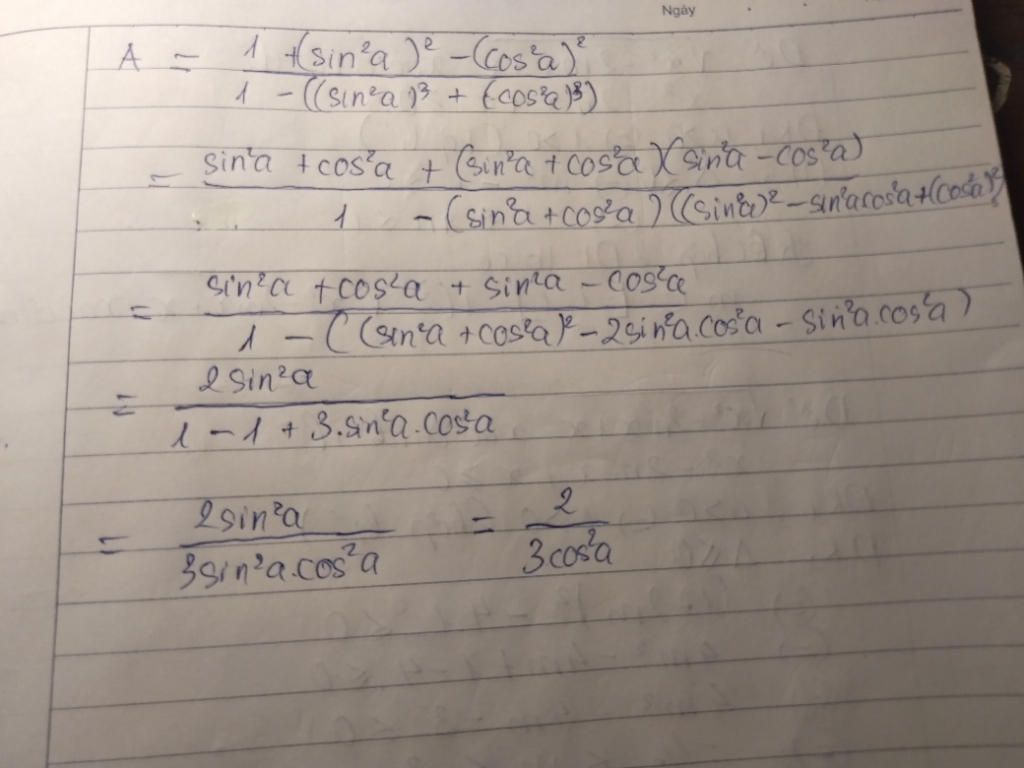 Ngày
A = \frac{1 + (sin²a)² - (cos²a)²}{1 - ((sin²a)³ + (cos²a)³)}
= \frac{sin²a + cos²a + (sin²a + cos²a)(sin²a - cos²a)}{1 - (sin²a + cos²a)((sin²a)² - sin²acos²a + (cos²a)²)}
= \frac{sin²a + cos²a + sin²a - cos²a}{1 - ((sin²a + cos²a)² - 2sin²a.cos²a - sin²a.cos²a)}
= \frac{2sin²a}{1 - 1 + 3.sin²a.cos²a}
= \frac{2sin²a}{3sin²a.cos²a} = \frac{2}{3cos²a}